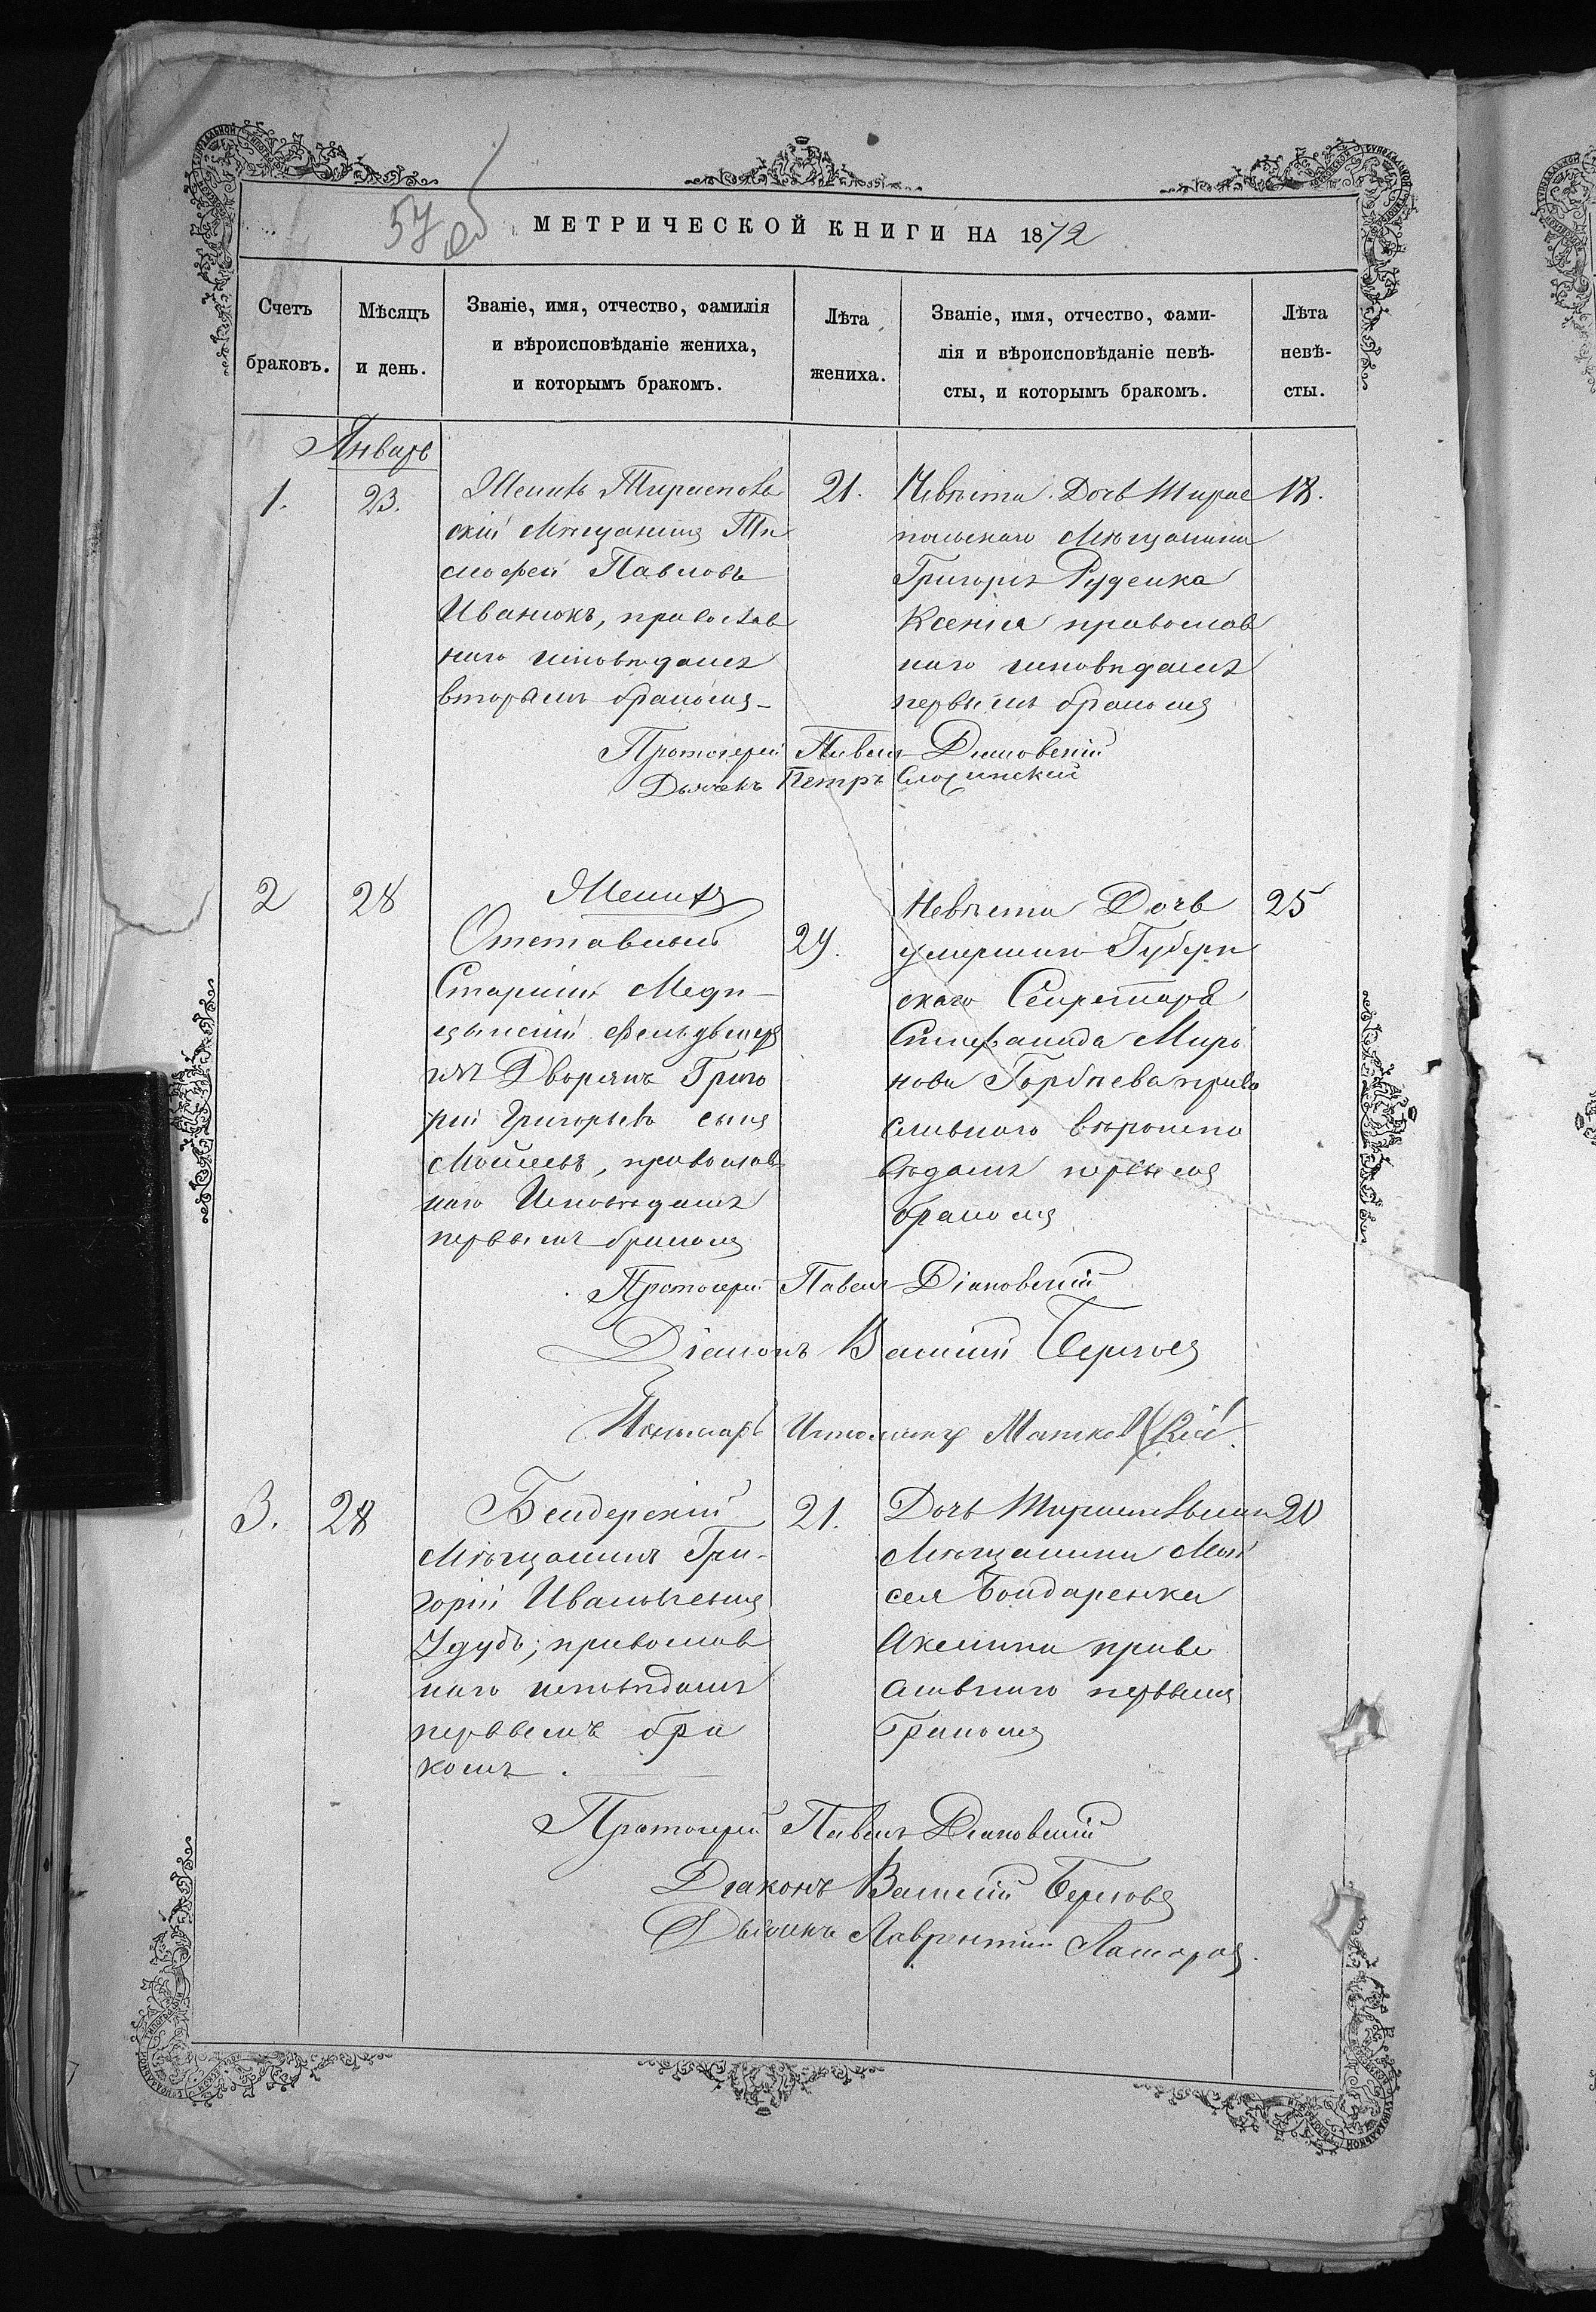 57 об
МЕТРИЧЕСКОЙ КНИГИ НА 1872
Счетъ браковъ.
Мѣсяцъ и день.
Званіе, имя, отчество, фамилія
и вѣроисповѣданіе жениха,
и которымъ бракомъ.
Лѣта жениха.
Званіе, имя, отчество, фами-
лія и вѣроисповѣданіе невѣ-
сты, и которымъ бракомъ.
Лѣта невѣ-
сты.
Январь
1.
23.
Женихъ Тирасполь
скій Мѣщанинъ Ти
мофей Павловъ
Иванюкъ, православ
наго исповѣданія
вторымъ бракомъ
21.
Невѣста Дочь Тирас
польскаго Мѣщанина
Григорія Руденка
Ксенія православ
наго исповѣданія
первымъ бракомъ
18.
Протоіерей Павелъ Діановскій
Дьячекъ Петръ
2
28
Женихъ
Отставный
Старшій Меди-
цынскій фельдшеръ
изъ Дворянъ Григо
рій Григорьевъ сынъ
православ
наго Исповѣданія
первымъ бракомъ
29.
Невѣста Дочь
умершаго Губерн
скаго Секретаря
Стефанида Миро
нова Горбнева право
славнаго вѣроиспо
вѣданія первымъ
бракомъ
25
Протоіерей Павелъ Діановскій
Діаконъ Василій
Пономарь
3.
28
Бендерскій
Мѣщанинъ Гри-
горій Ивановъ сынъ
православ
наго исповѣданія
первымъ бра
комъ.
21.
Дочь Тираспольскаго
Мѣщанина Мои
сея Бондаренка
Акелина право
славнаго первымъ
бракомъ
20
Протоіерей Павелъ Діановскій
Діаконъ Василій
Дьячекъ Лаврентій